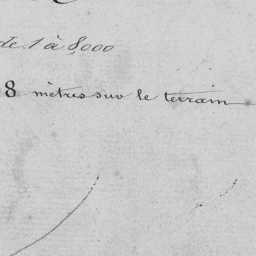 de 1 à 8,000
8 mètres sur le terrain